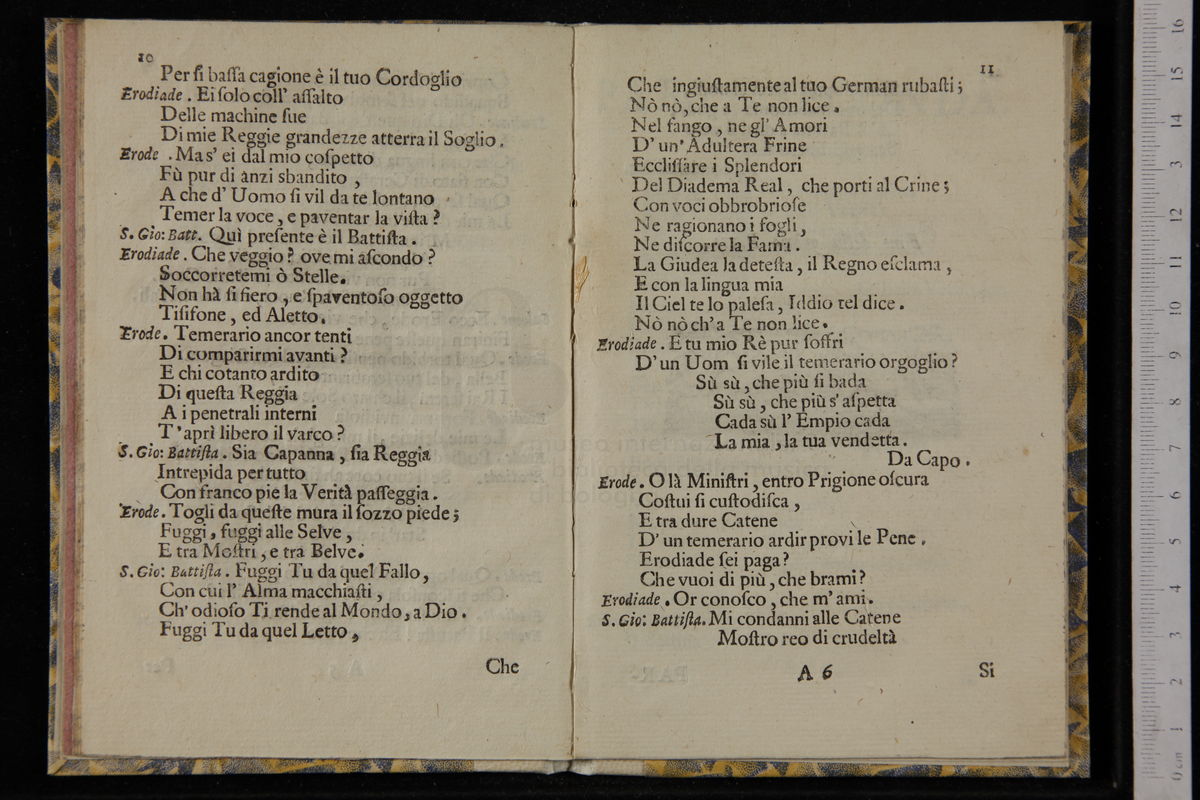 10
Per ſi baſſa cagione è il tuo Cordoglio
Erodiade. Ei ſolo coll' aſſalto
Delle machine ſue
Di mie Reggie grandezze atterra il Soglio.
Erode. Ma s' ei dal mio coſpetto
Fù pur di anzi sbandito,
A che d' Uomo ſi vil da te lontano
Temer la voce, e paventar la viſta?
S. Gio: Batt. Quì preſente è il Battiſta.
Erodiade. Che veggio? ove mi aſcondo?
Soccorretemi ò Stelle.
Non hà ſi fiero, e ſpaventoſo oggetto
Tiſifone, ed Aletto.
Erode. Temerario ancor tenti
Di comparirmi avanti?
E chi cotanto ardito
Di queſta Reggia
A i penetrali interni
T'aprì libero il varco?
S. Gio: Battiſta. Sia Capanna, ſia Reggia
Intrepida per tutto
Con franco pie la Verità paſſeggia.
Erode. Togli da queſte mura il ſozzo piede;
Fuggi, fuggi alle Selve,
E tra Moſtri, e tra Belve.
S. Gio: Battiſta. Fuggi Tu da quel Fallo,
Con cui l' Alma macchiaſti,
Ch' odioſo Ti rende al Mondo, a Dio.
Fuggi Tu da quel Letto,
Che
11
Che ingiuſtamente al tuo German rubaſti;
Nò nò, che a Te non lice.
Nel fango, ne gl' Amori
D' un' Adultera Frine
Eccliſſare i Splendori
Del Diadema Real, che porti al Crine;
Con voci obbrobrioſe
Ne ragionano i fogli,
Ne diſcorre la Fama.
La Giudea la deteſta, il Regno eſclama,
E con la lingua mia
Il Ciel te lo paleſa, Iddio tel dice.
Nò nò ch' a Te non lice.
Erodiade. E tu mio Rè pur ſoffri
D' un Uom ſi vile il temerario orgoglio?
Sù sù, che più ſi bada
Sù sù, che più s' aſpetta
Cada sù l' Empio cada
La mia, la tua vendetta.
Da Capo.
Erode. O là Miniſtri, entro Prigione oſcura
Coſtui ſi cuſtodiſca,
E tra dure Catene
D' un temerario ardir provi le Pene.
Erodiade ſei paga?
Che vuoi di più, che brami?
Erodiade. Or conoſco, che m' ami.
S. Gio: Battiſta. Mi condanni alle Catene
Moſtro reo di crudeltà
A 6
Si